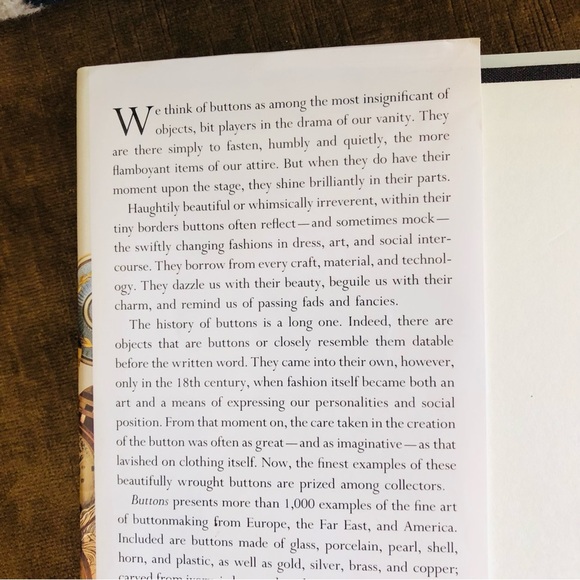 We think of buttons as among the most insignificant of
objects, bit players in the drama of our vanity. They
are there simply to fasten, humbly and quietly, the more
flamboyant items of our attire. But when they do have their
moment upon the stage, they shine brilliantly in their parts.
Haughtily beautiful or whimsically irreverent, within their
tiny borders buttons often reflect—and sometimes mock—
the swiftly changing fashions in dress, art, and social inter-
course. They borrow from every craft, material, and technol-
ogy. They dazzle us with their beauty, beguile us with their
charm, and remind us of passing fads and fancies.
The history of buttons is a long one. Indeed, there are
objects that are buttons or closely resemble them datable
before the written word. They came into their own, however,
only in the 18th century, when fashion itself became both an
art and a means of expressing our personalities and social
position. From that moment on, the care taken in the creation
of the button was often as great—and as imaginative—as that
lavished on clothing itself. Now, the finest examples of these
beautifully wrought buttons are prized among collectors.
Buttons presents more than 1,000 examples of the fine art
of buttonmaking from Europe, the Far East, and America.
Included are buttons made of glass, porcelain, pearl, shell,
horn, and plastic, as well as gold, silver, brass, and copper;
carved from